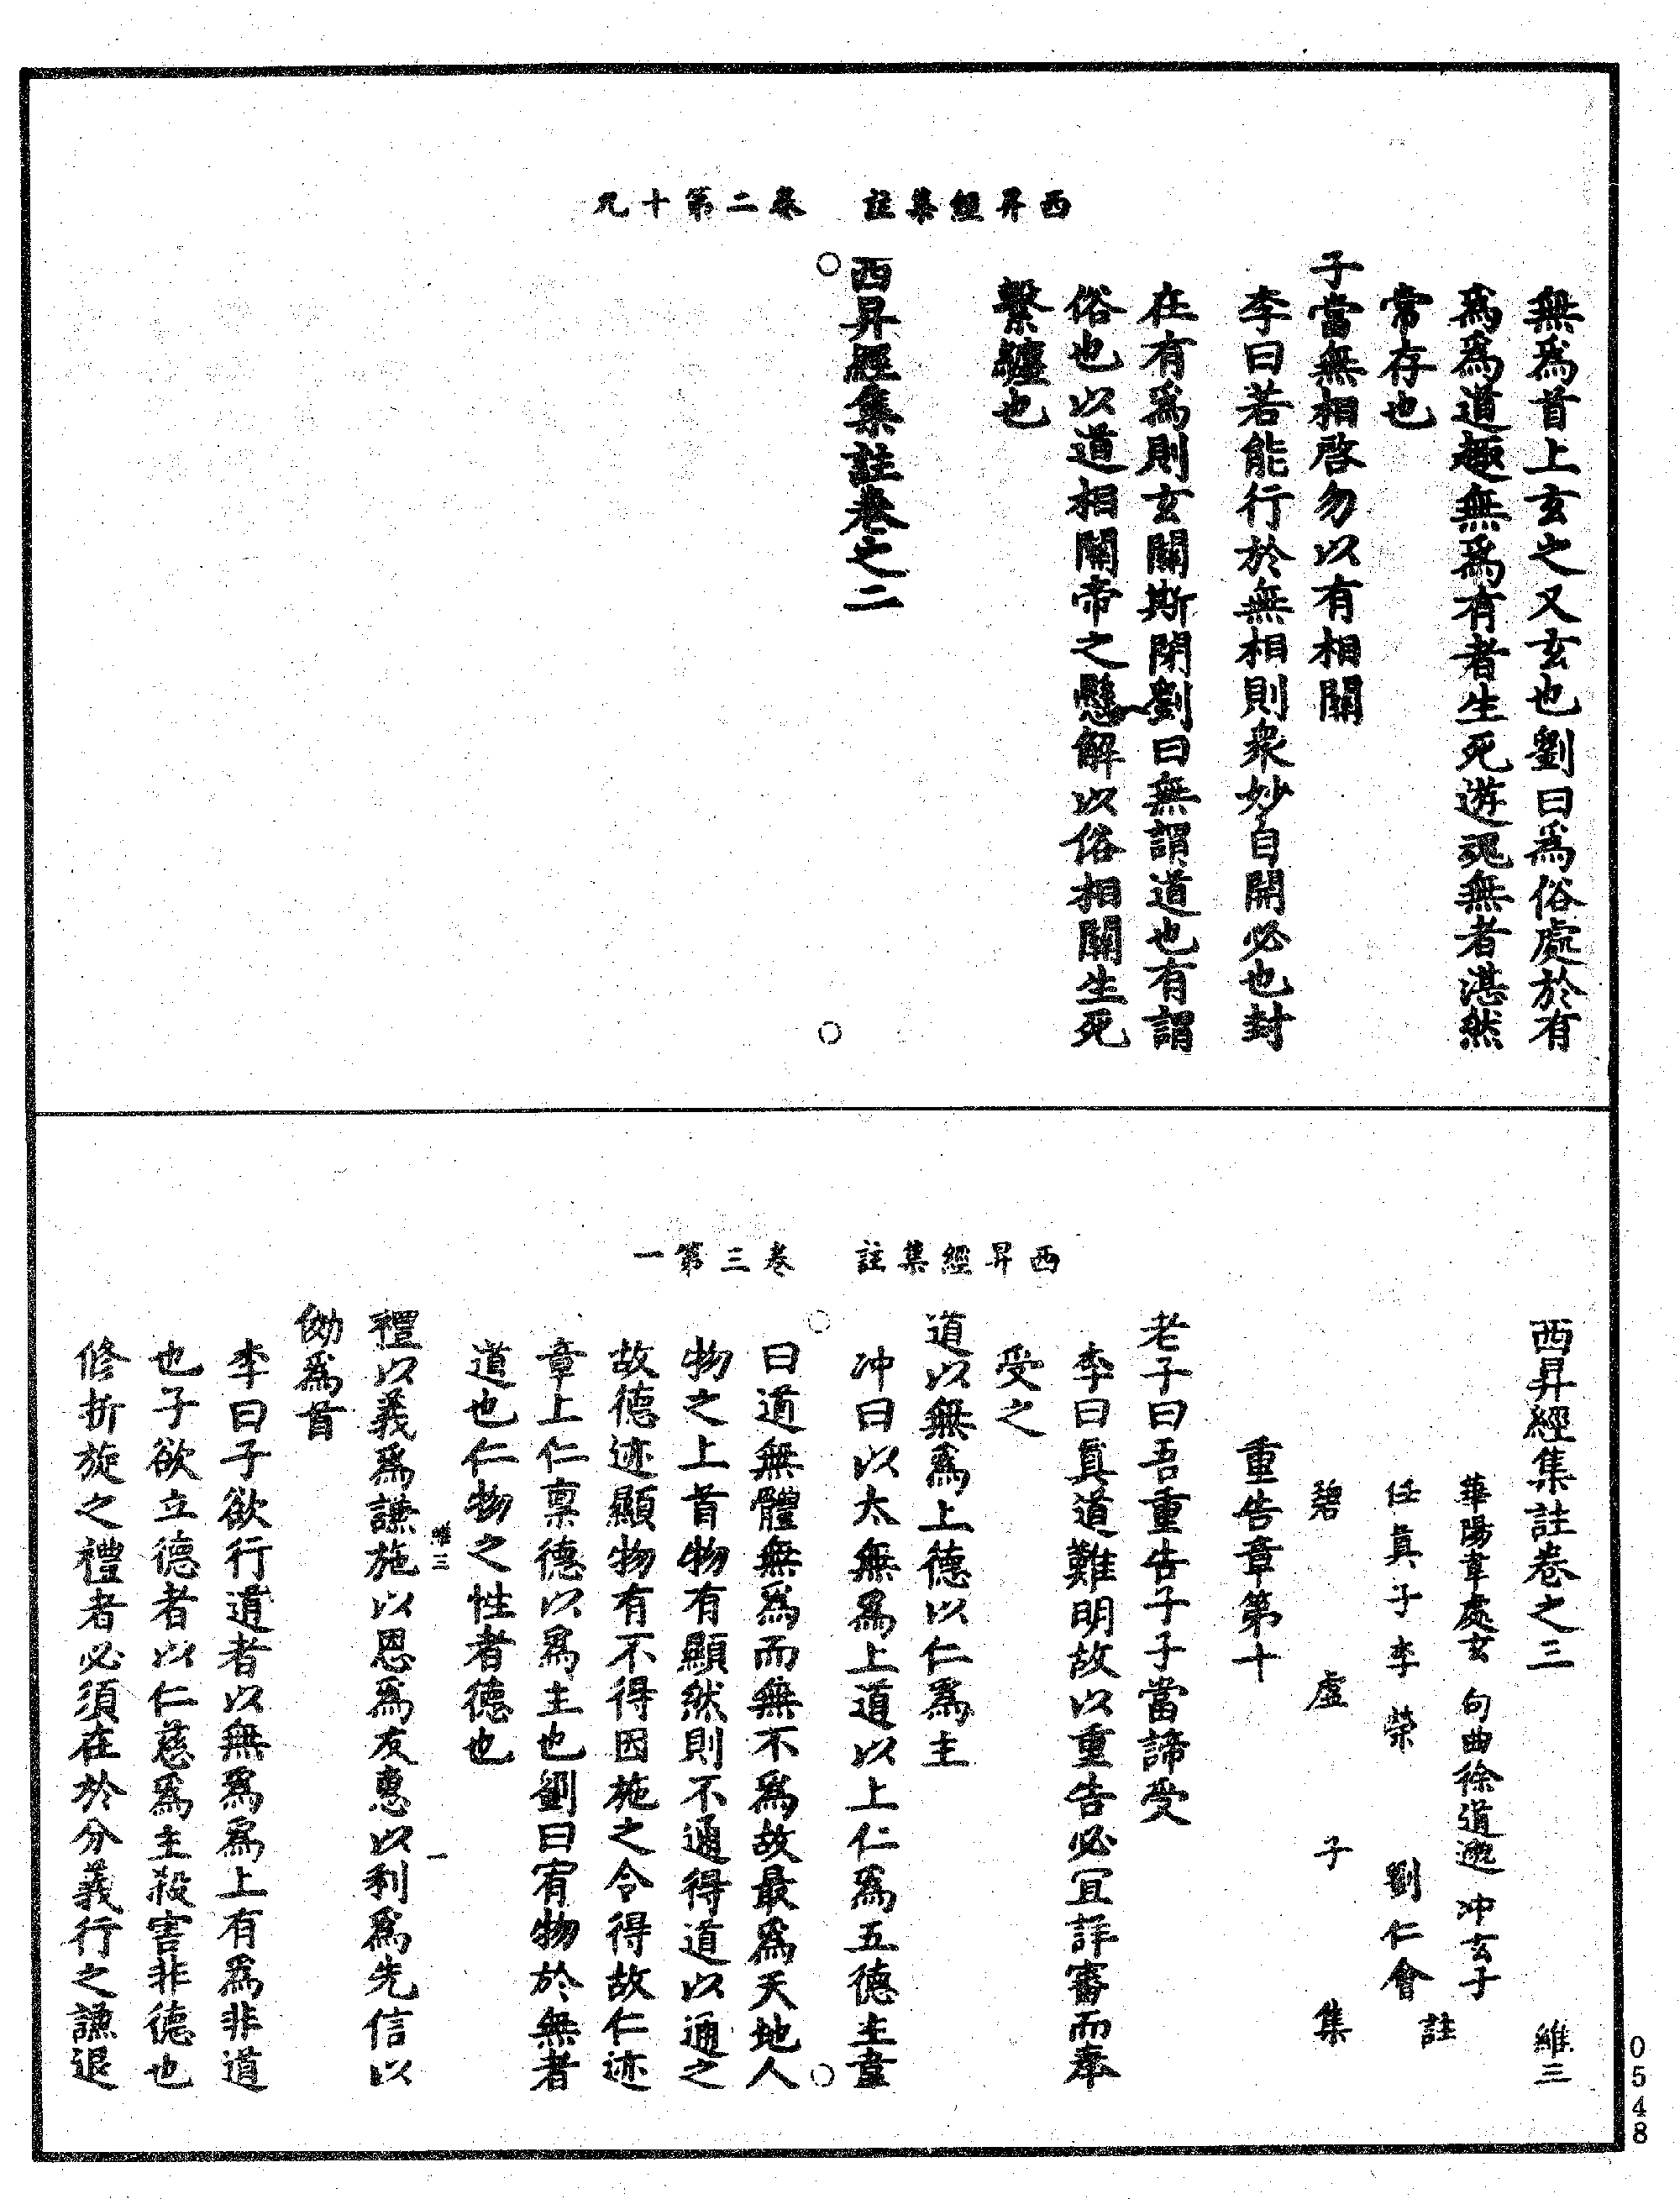 西昇經集註　卷二第十九
無爲首上玄之又玄也劉曰爲俗處於有
爲爲道趣無爲有者生死遊魂無者湛然
常存也
子當無相啓勿以有相關
李曰若能行於無相則衆妙自開必也封
在有爲則玄關斯閉劉曰無謂道也有謂
俗也以道相關帝之懸解以俗相關生死
繫纏也
西昇經集註卷之二
西昇經集註　卷三第一
西昇經集註卷之三　維三
華陽韋處玄　句曲徐道邈　冲玄子
任真子李榮　劉仁會　註
碧虛子　集
重告章第十
老子曰吾重告子子當諦受
李曰真道難明故以重告必宜詳審而奉
受之
道以無爲上德以仁爲主
冲曰以太無爲上道以上仁爲五德主韋
曰道無體無爲而無不爲故最爲天地人
物之上首物有顯然則不通得道以通之
故德迹顯物有不得因施之令得故仁迹
章上仁禀德以爲主也劉曰宥物於無者
道也仁物之性者德也
維三　一
禮以義爲謙施以恩爲友惠以利爲先信以
効爲首
李曰子欲行道者以無爲爲上有爲非道
也子欲立德者以仁慈爲主殺害非德也
修折旋之禮者必須在於分義行之謙退
0548